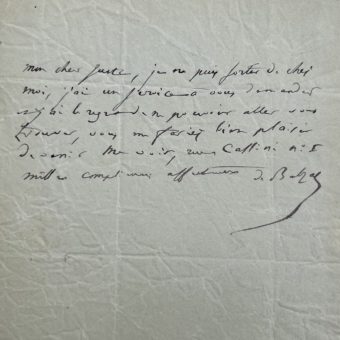 mon cher Juste, je ne puis sortir de chez
moi, j'ai un service à vous demander
et j'ai le regret de ne pouvoir aller vous
trouver, vous me feriez bien plaisir
de venir me voir, rue Cassini n° 1
mille compliments affectueux de Balzac